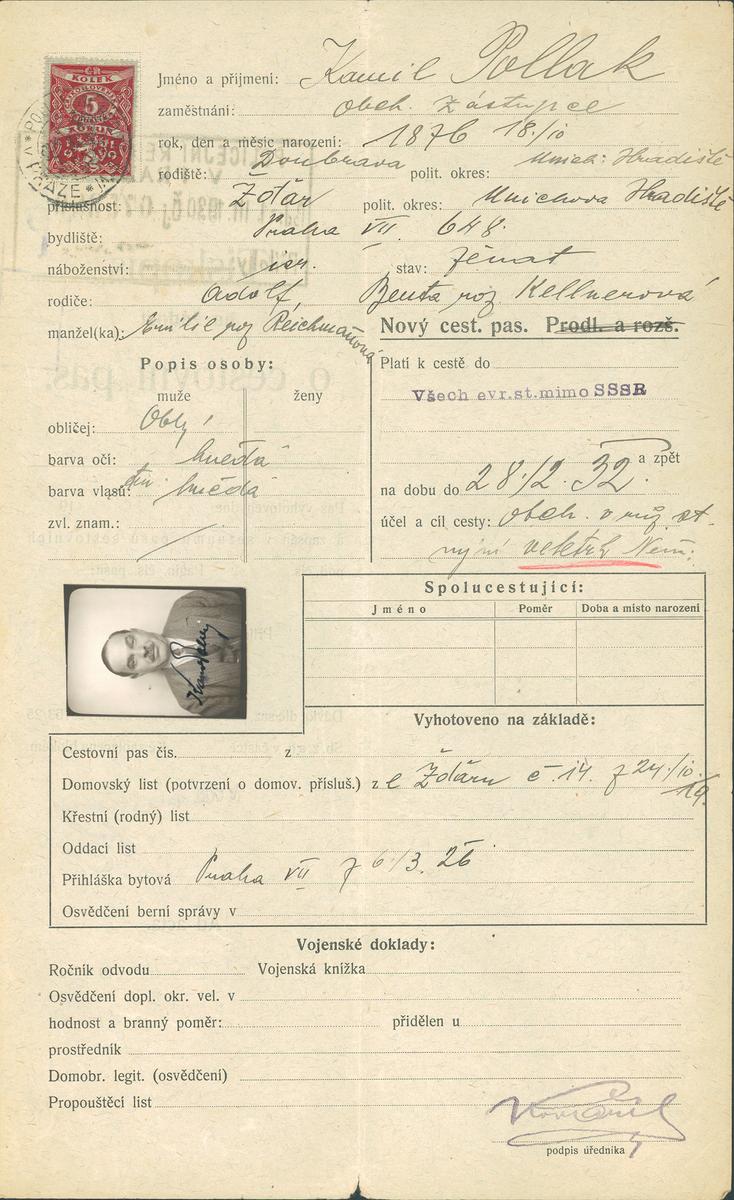 ČR
KOLEK
ČESKOSLOVENSKÝ
5
KORUN
Jméno a příjmení: Kamil Pollak
zaměstnání: obch. zástupce
rok, den a měsíc narození: 1876 18./10
rodiště: Doubrava polit. okres: Mnich: Hradiště
příslušnost: Žďár polit. okres: Mnichova Hradiště
bydliště: Praha VII. 648.
náboženství: isr. stav: ženat
rodiče: Adolf, Berta roz Kellnerová
manžel(ka): Emilie roz Reichmanová
Nový cest. pas. Prodl. a rozš.
Popis osoby:
Platí k cestě do
muže ženy
Všech evr.st.mimo SSSR
obličej: Oblý
barva očí: hnědá
a zpět
na dobu do 28./2. 32.
barva vlasů: hnědá
účel a cíl cesty: obch. v růz. st.
zvl. znam.: /
nyní veletrh Něm:
Spolucestující:
Jméno Poměr Doba a místo narození
Vyhotoveno na základě:
Cestovní pas čís. z
Domovský list (potvrzení o domov. přísluš.) z e Žďáru č. 14. z 24./10. 19.
Křestní (rodný) list
Oddací list
Přihláška bytová Praha VII z 6./3. 26
Osvědčení berní správy v
Vojenské doklady:
Ročník odvodu Vojenská knížka
Osvědčení dopl. okr. vel. v
hodnost a branný poměr: přidělen u
prostředník
Domobr. legit. (osvědčení)
Propouštěcí list
podpis úředníka